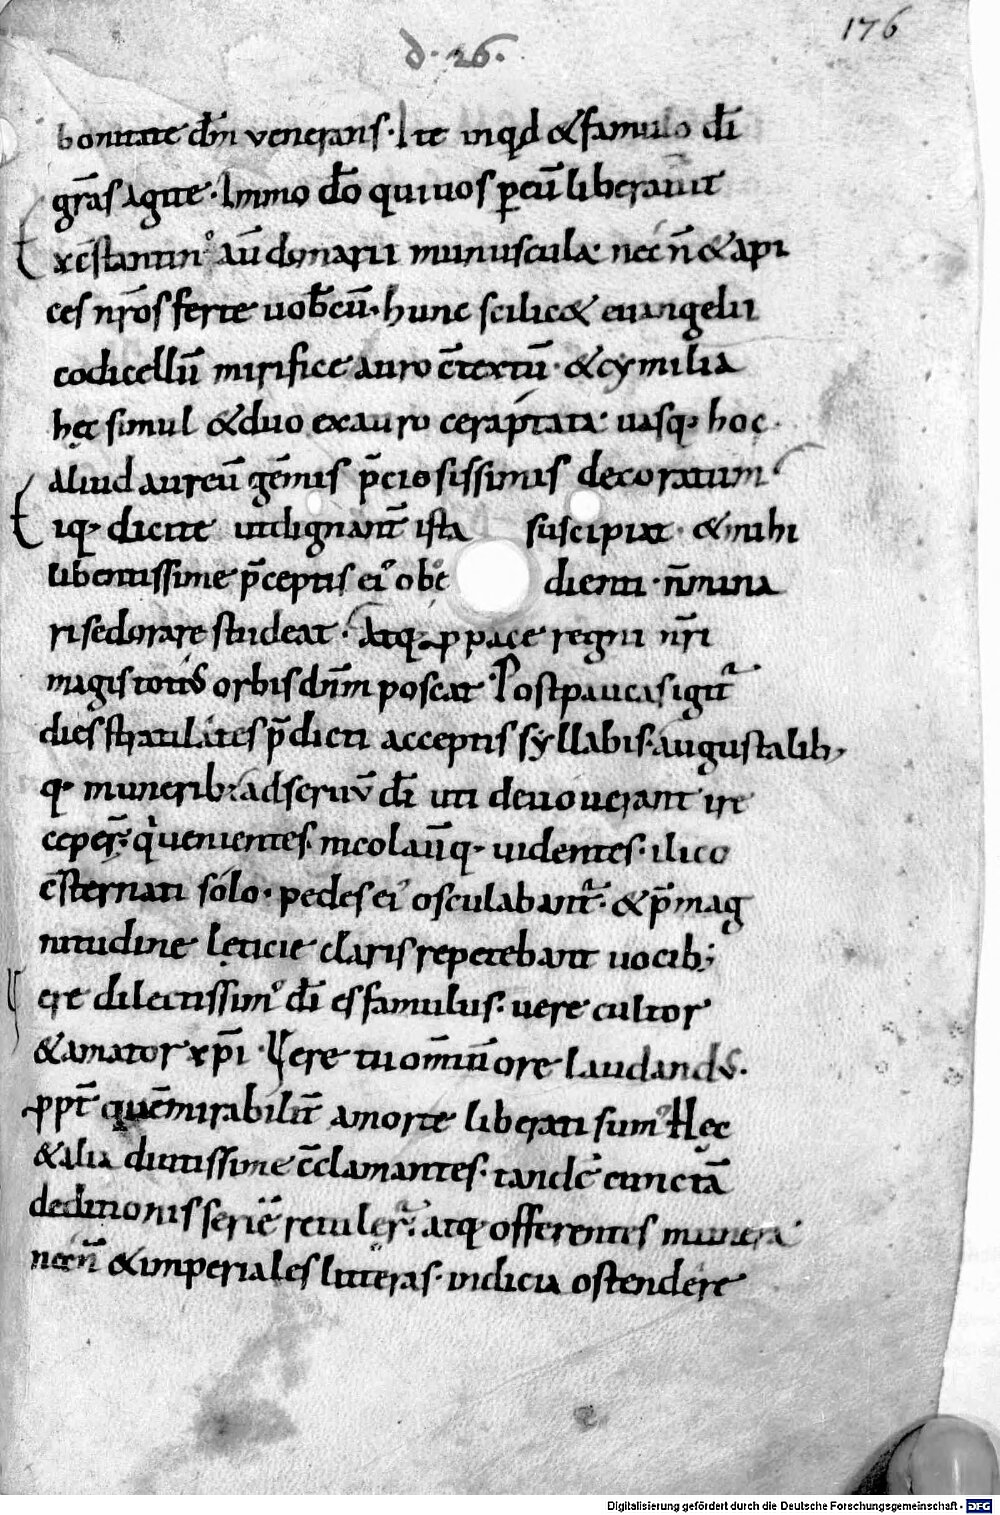 176
d. 26.
bonitate dn̄m venerans. Ite inqd & famulo dī
gr̄as agite. Immo dō qui uos p̲ eū liberauit
x c̄stantin᾿ aū donarii munuscula. necn̄ & api
ces nr̄os ferte uob̄cū. hunc scilic& euangelii
codicellū mirifice auro c̄textū. & cymilia
hęc simul & duo ex auro ceraptata. uasq; hoc
aliud aureū gēmis p̄ciosissimis decoratum
iq; dicite ut dignant̄ ista suscipiat. & mihi
libentissime p̄ceptis ei᾿ obe dienti. n̄ mina
ri sed orare studeat. Atq; p pace regni nr̄i
magis totius orbis dn̄m poscat. Post paucas igit᾿
dies stratilates p̄dicti acceptis syllabis. augustalib;
q; munerib; ad seruū dī uti deuouerant ire
ceper̄. q᾿ uenientes. nicolaūq; uidentes. ilico
c̄sternati solo. pedes ei᾿ osculabant᾿. & p̄ mag
nitudine lęticie claris repetebant uocib;
ere dilectissim᾿ dī es famulus. uere cultor
& amator xp̄i. Vere tu om̄iū ore laudandus.
ppt̄ quē mirabilit̄ a morte liberati sum᾿ Hęc
& alia diutissime c̄clamantes. tandē cunctā
deditionis seriē retuler̄. atq; offerentes munera
necn̄ & imperiales litteras. indicia ostendere
Digitalisierung gefördert durch die Deutsche Forschungsgemeinschaft - DFG